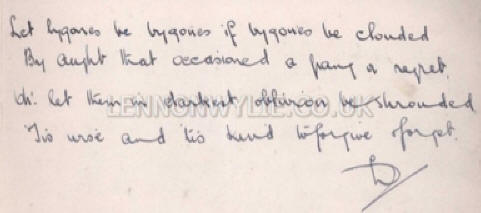 Let bygones be bygones if bygones be clouded
By aught that occasioned a pang a regret.
Oh! let them in darkest oblivion be shrouded
Tis wise and tis kind to forgive forget.
LENNONWYLIE.CO.UK